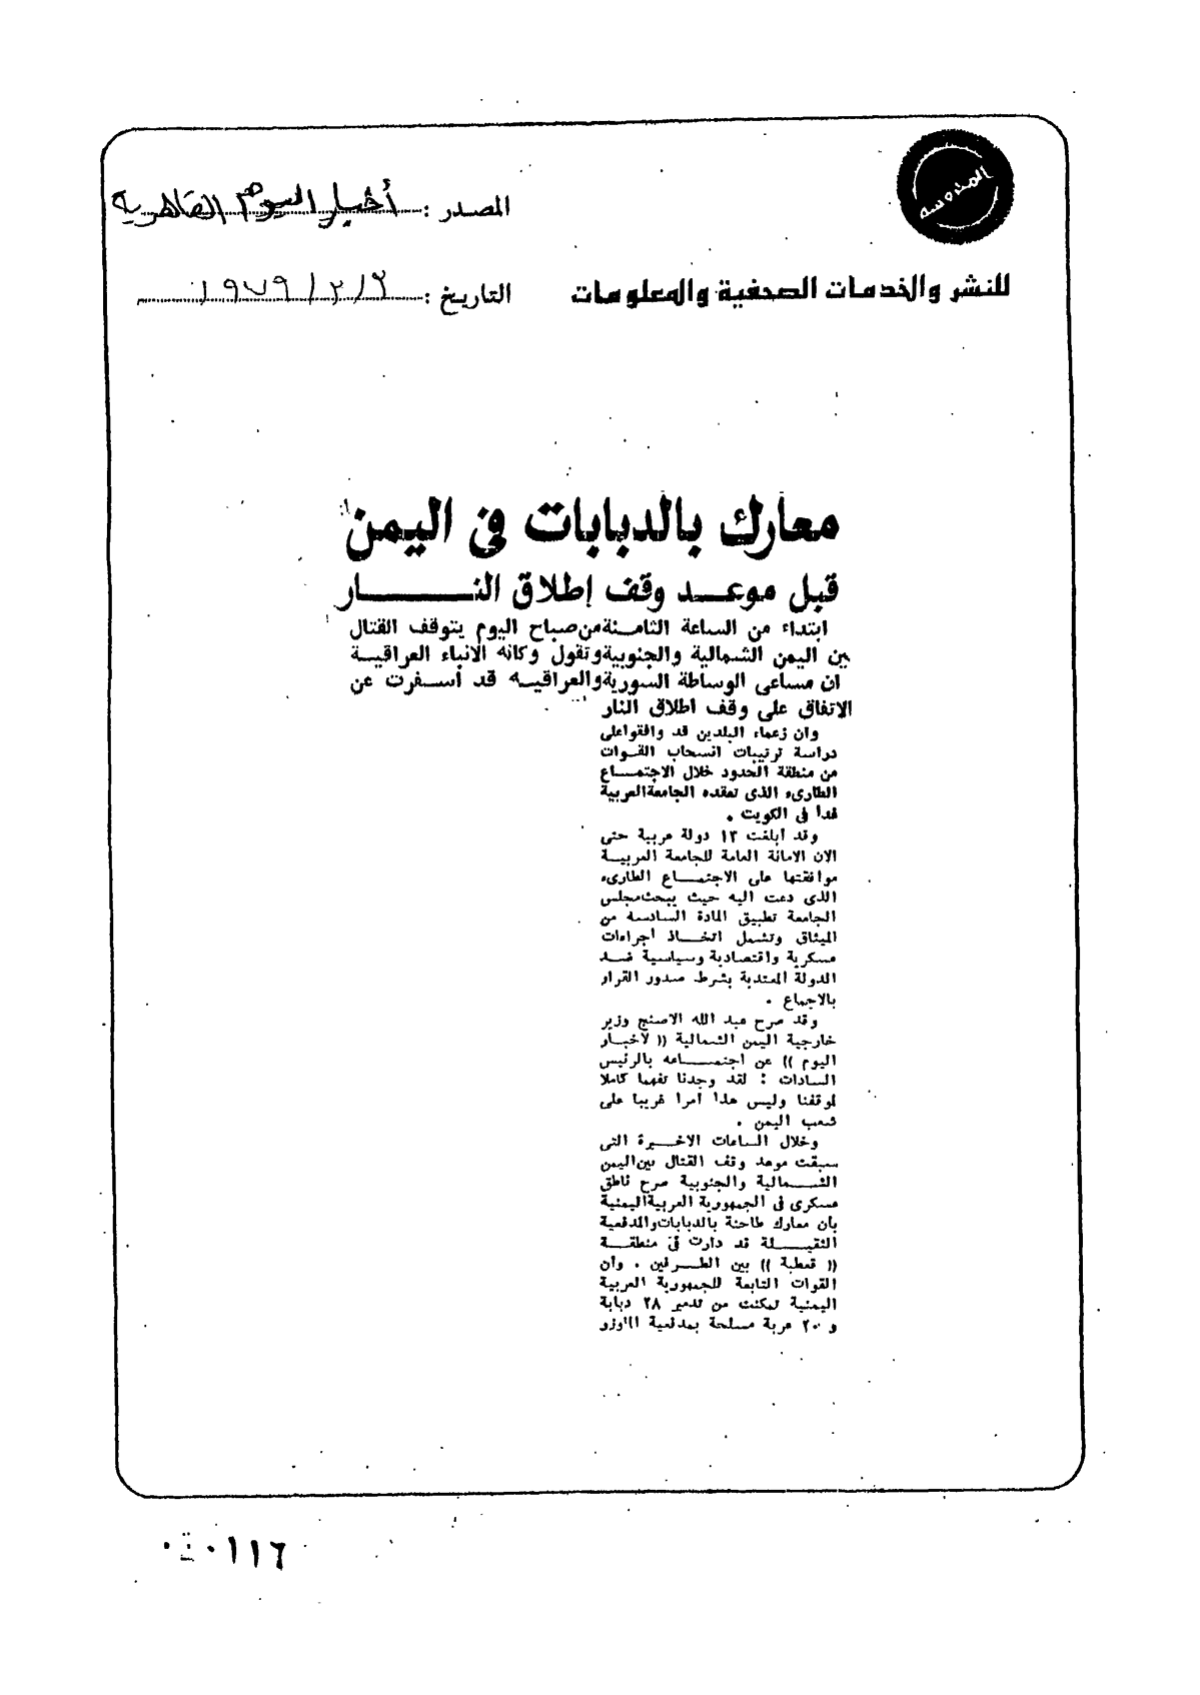 المدروسه
المصدر : أخبار اليوم القاهرية
للنشر والخدمات الصحفية والمعلومات
التاريخ : ١٩٧٩/٣/٢
معارك بالدبابات في اليمن
قبل موعد وقف إطلاق النار
ابتداء من الساعة الثامنة من صباح اليوم يتوقف القتال
بين اليمن الشمالية والجنوبية وتقول وكالة الانباء العراقية
ان مساعى الوساطة السورية والعراقيه قد أسفرت عن
الاتفاق على وقف اطلاق النار
وان زعماء البلدين قد وافقوا على
دراسة ترتيبات انسحاب القوات
من منطقة الحدود خلال الاجتماع
الطارىء الذى تعقده الجامعة العربية
غدا فى الكويت .
وقد أبلغت ١٣ دولة عربية حتى
الان الامانة العامة للجامعة العربية
موافقتها على الاجتماع الطارىء
الذى دعت اليه حيث يبحث مجلس
الجامعة تطبيق المادة السادسة من
الميثاق وتشمل اتخاذ أجراءات
عسكرية واقتصادية وسياسية ضد
الدولة المعتدية بشرط صدور القرار
بالاجماع .
وقد صرح عبد الله الاصنج وزير
خارجية اليمن الشمالية (( لاخبار
اليوم )) عن اجتماعه بالرئيس
السادات : لقد وجدنا تفهما كاملا
لموقفنا وليس هذا أمرا غريبا على
شعب اليمن .
وخلال الساعات الاخيرة التى
سبقت موعد وقف القتال بين اليمن
الشمالية والجنوبية صرح ناطق
عسكرى فى الجمهورية العربية اليمنية
بأن معارك طاحنة بالدبابات والمدفعية
الثقيلة قد دارت فى منطقة
(( قعطبة )) بين الطرفين . وأن
القوات التابعة للجمهورية العربية
اليمنية تمكنت من تدمير ٢٨ دبابة
و ٢٠ عربة مسلحة بمدفعية
٠١١٦